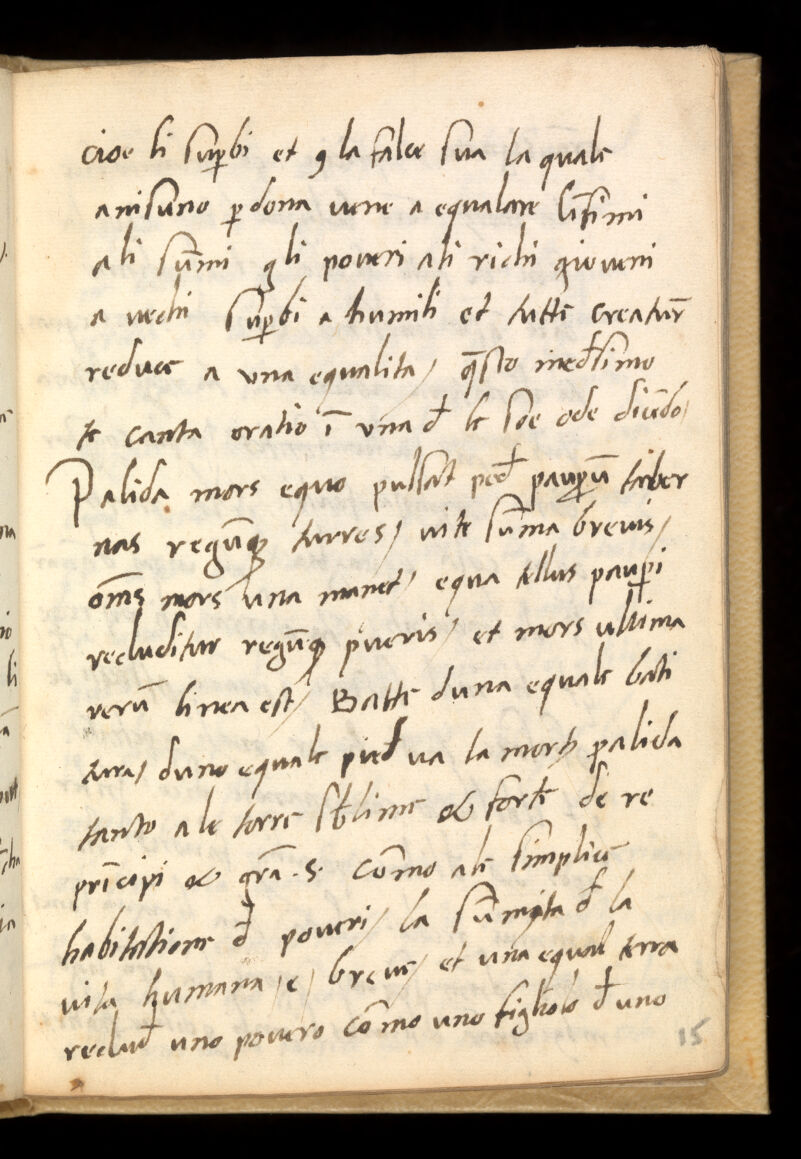 cioe li sup̱bi et ꝯ la falce sua la quale
a nisuno p̱ dona uene a equalare l'ifimi
a li sūmi gli poueri ali richi gioueni
a uechi sup̱bi a humili et tutte creatur̄
reduce a una equalita/ q̄sto med̄simo
te canta oratio ī una d̄ le soe ode diūdo/
Palida mors equo pulsat ped̄ paup̱ū taber
nas regūqꝫ turres/ uite sūma breuis/
om̄s mors una manet/ equa tellus paup̱i
recluditur regūqꝫ pueris/ et mors ultima
rerū linea est/ Batte duna equale bati
tura/ duno equale pied̄ ua la morte palida
tanto a le torre sb̄lime & forte de re
prīcipi & grā. S. cōmo ale simplice
habitatione d̄ poueri/ la sūmita d̄ la
uita humana /e/ breue/ et una equal terra
reclud̄ uno pouero cōmo uno figliolo d̄ uno
15